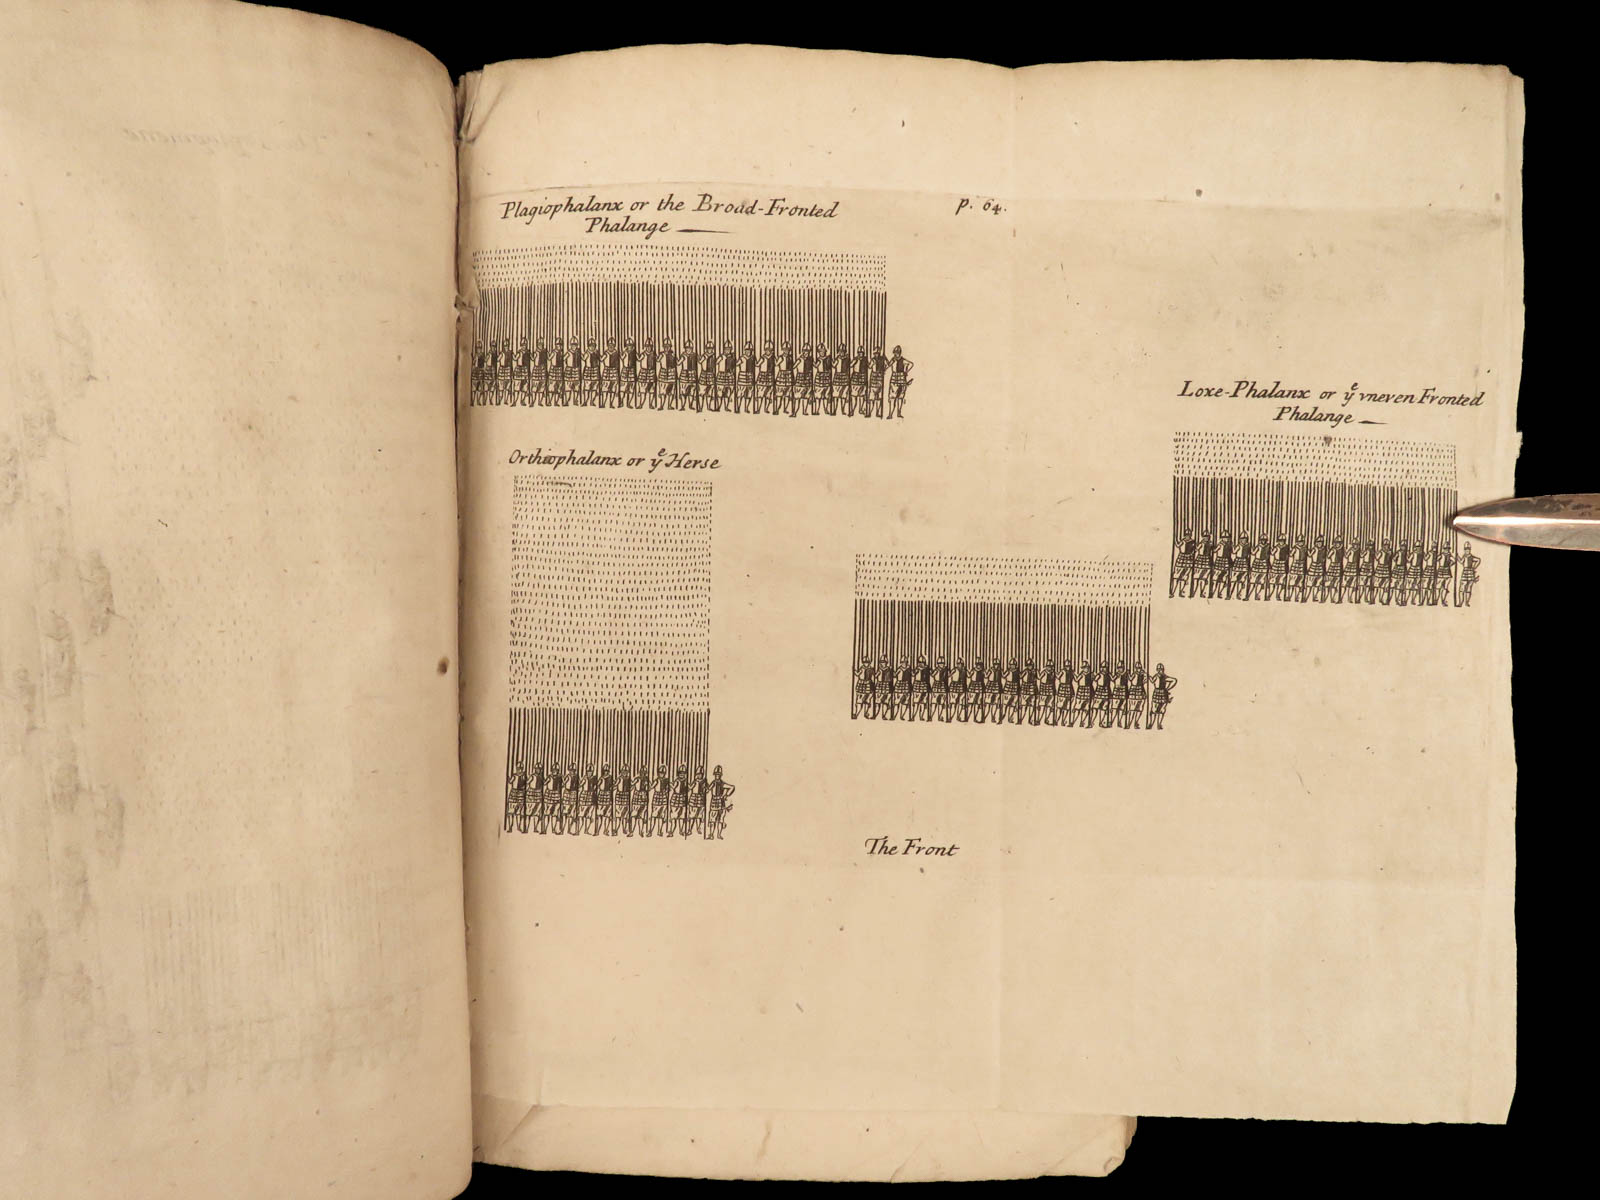 Plagiophalanx or the Broad-Fronted
Phalange
p. 64.
Loxe-Phalanx or yᵉ vneven Fronted
Phalange
Orthiophalanx or yᵉ Herse
The Front